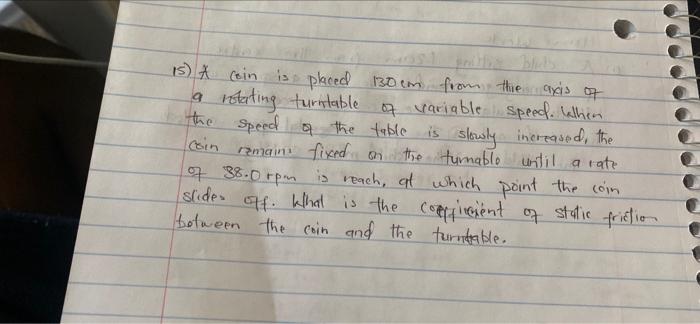 15) A coin is placed 130 cm from the axis of
a rotating turntable of variable speed. When
the speed of the table is slowly increased, the
coin remains fixed on the turnable until a rate
of 38.0 rpm is reach, at which point the coin
slides off. What is the coefficient of static friction
between the coin and the turntable.